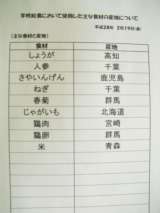 学校給食において使用した主な食材の産地について
平成28年 2月19日(金)
(主な食材と産地)
食材 産地
しょうが 高知
人参 千葉
さやいんげん 鹿児島
ねぎ 千葉
春菊 群馬
じゃがいも 北海道
鶏肉 宮崎
鶏卵 群馬
米 青森